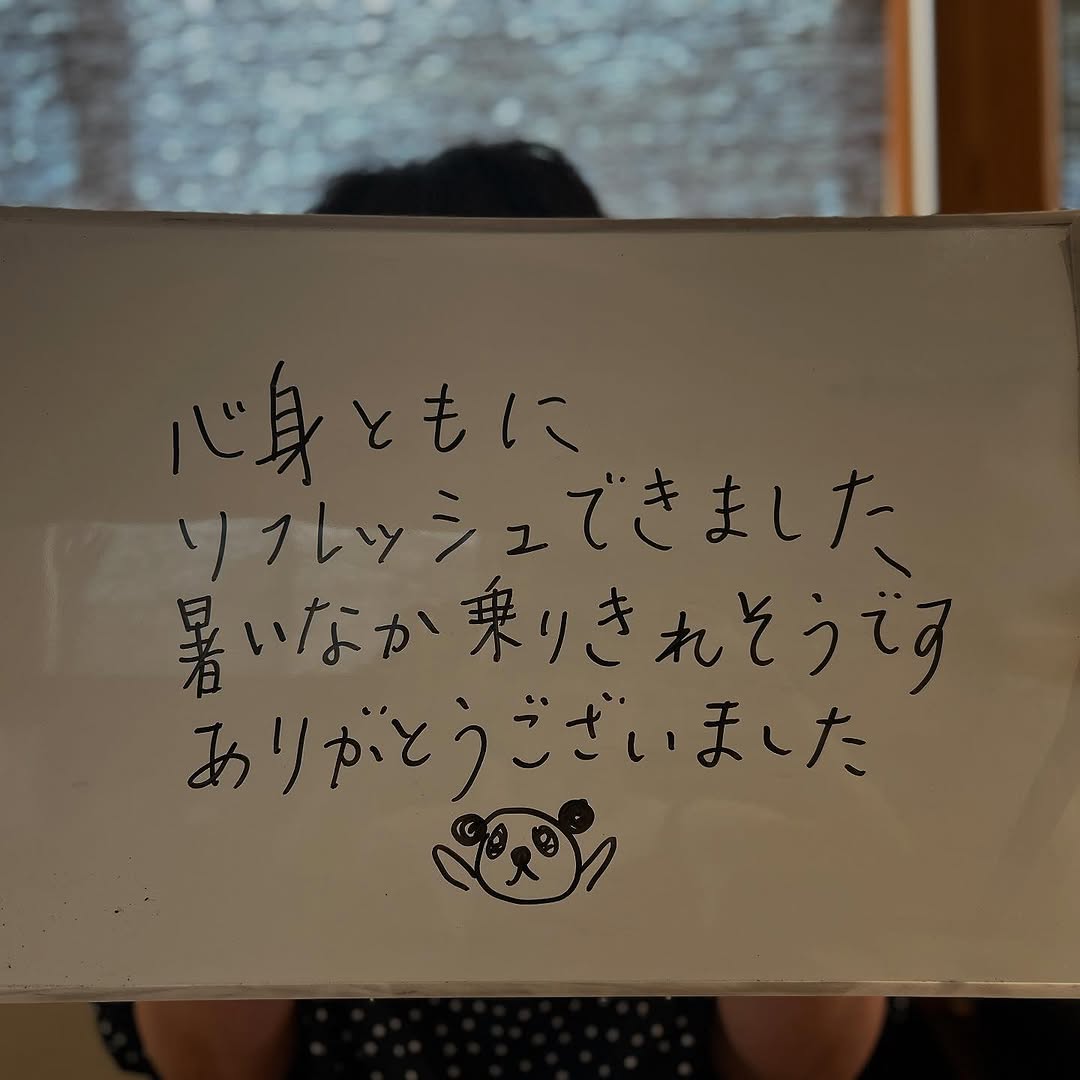 心身ともに
リフレッシュできました、
暑いなか乗りきれそうです
ありがとうございました